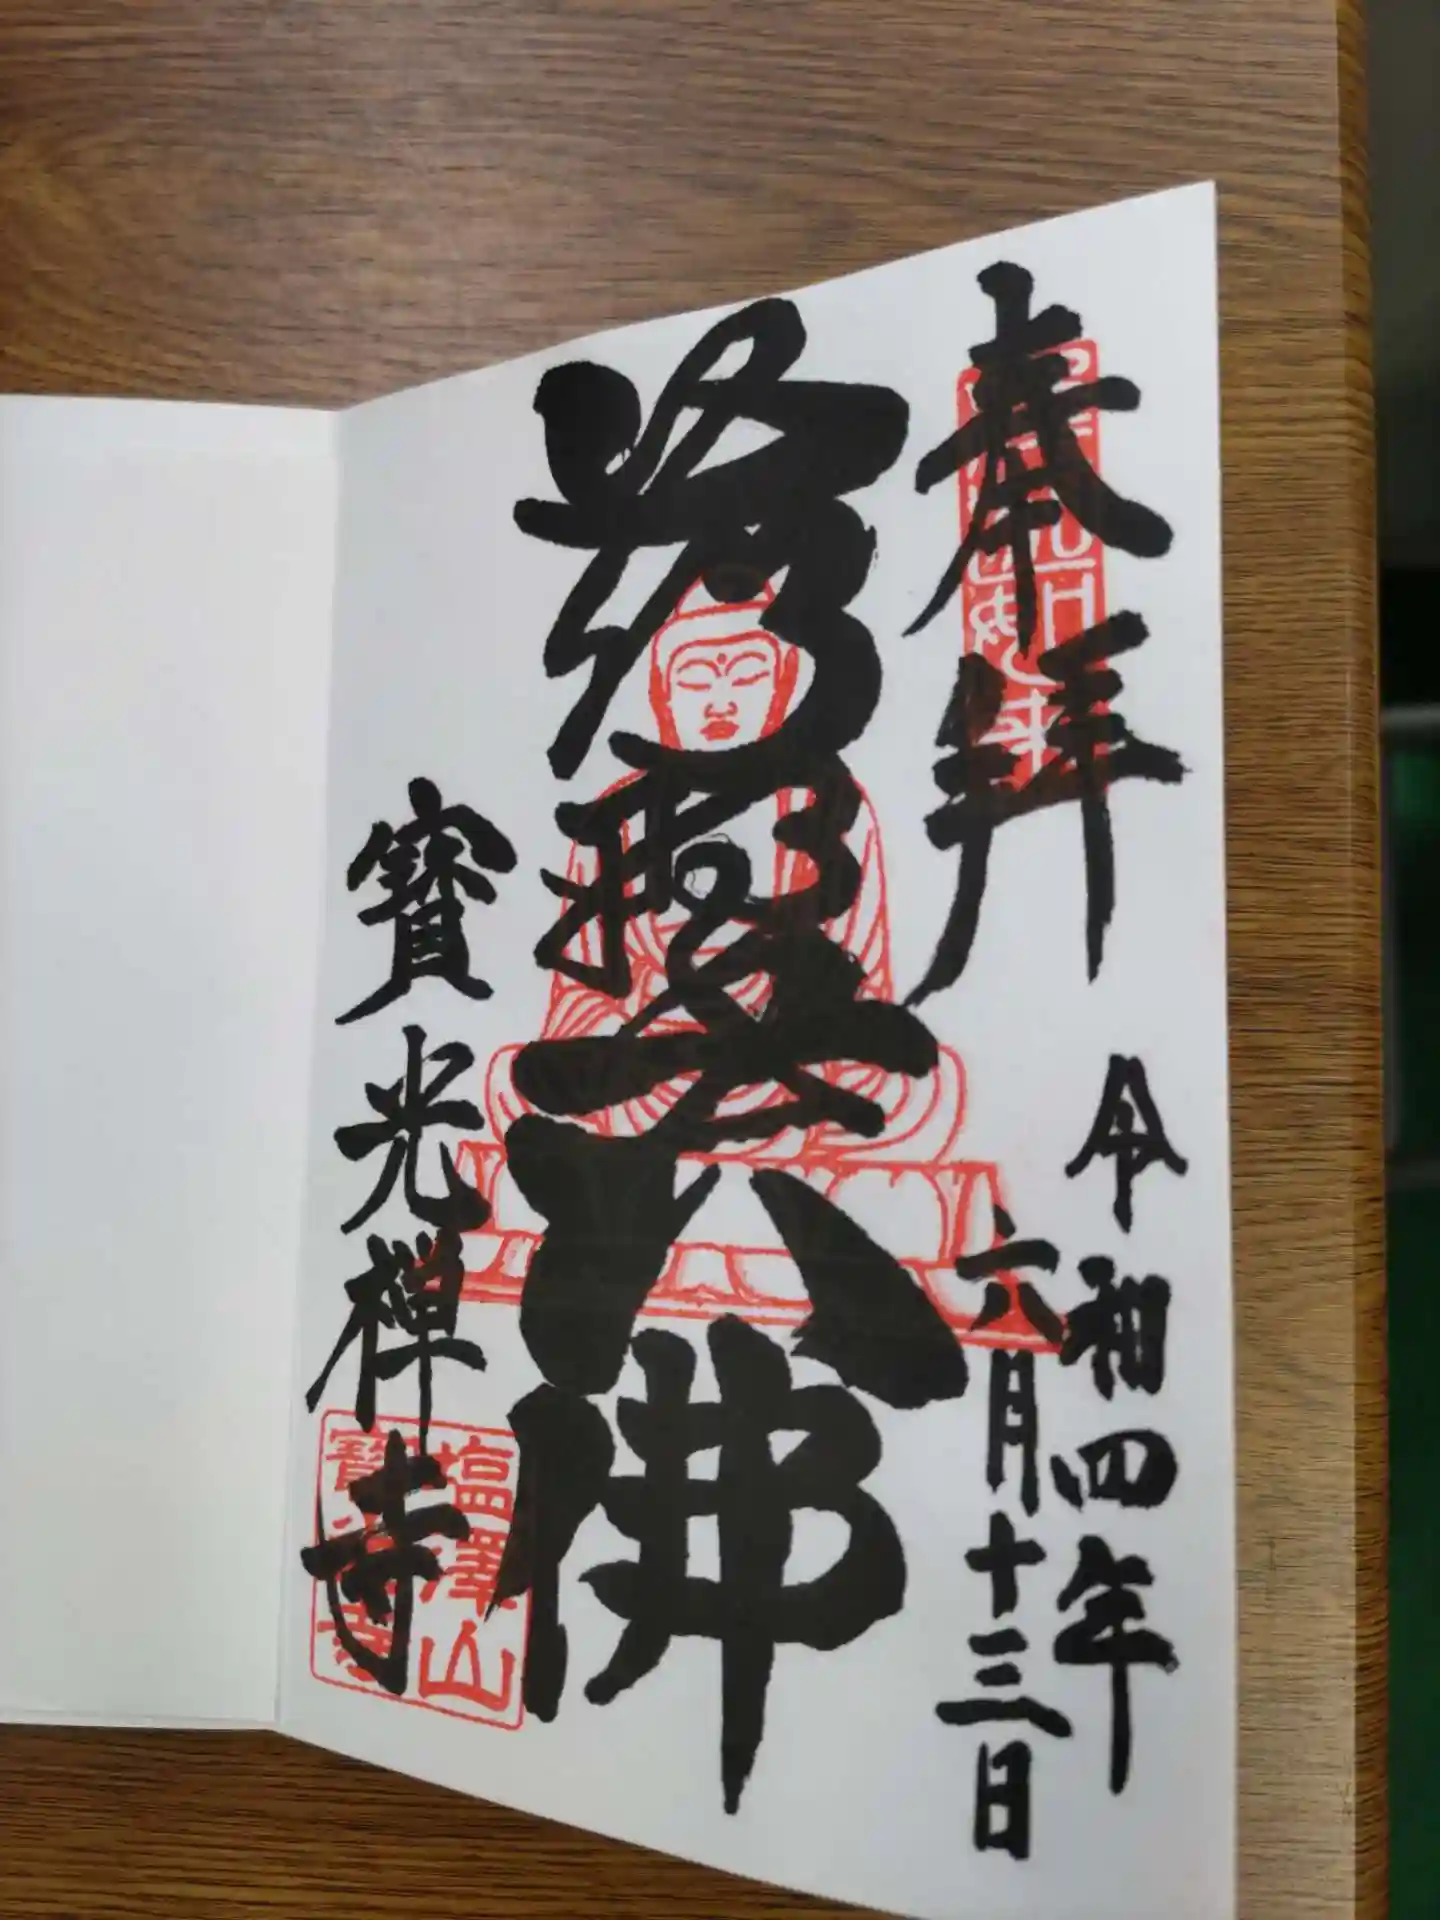 奉拝
令和四年
六月十三日
大佛
寶光禅寺
塩澤山
寶光寺